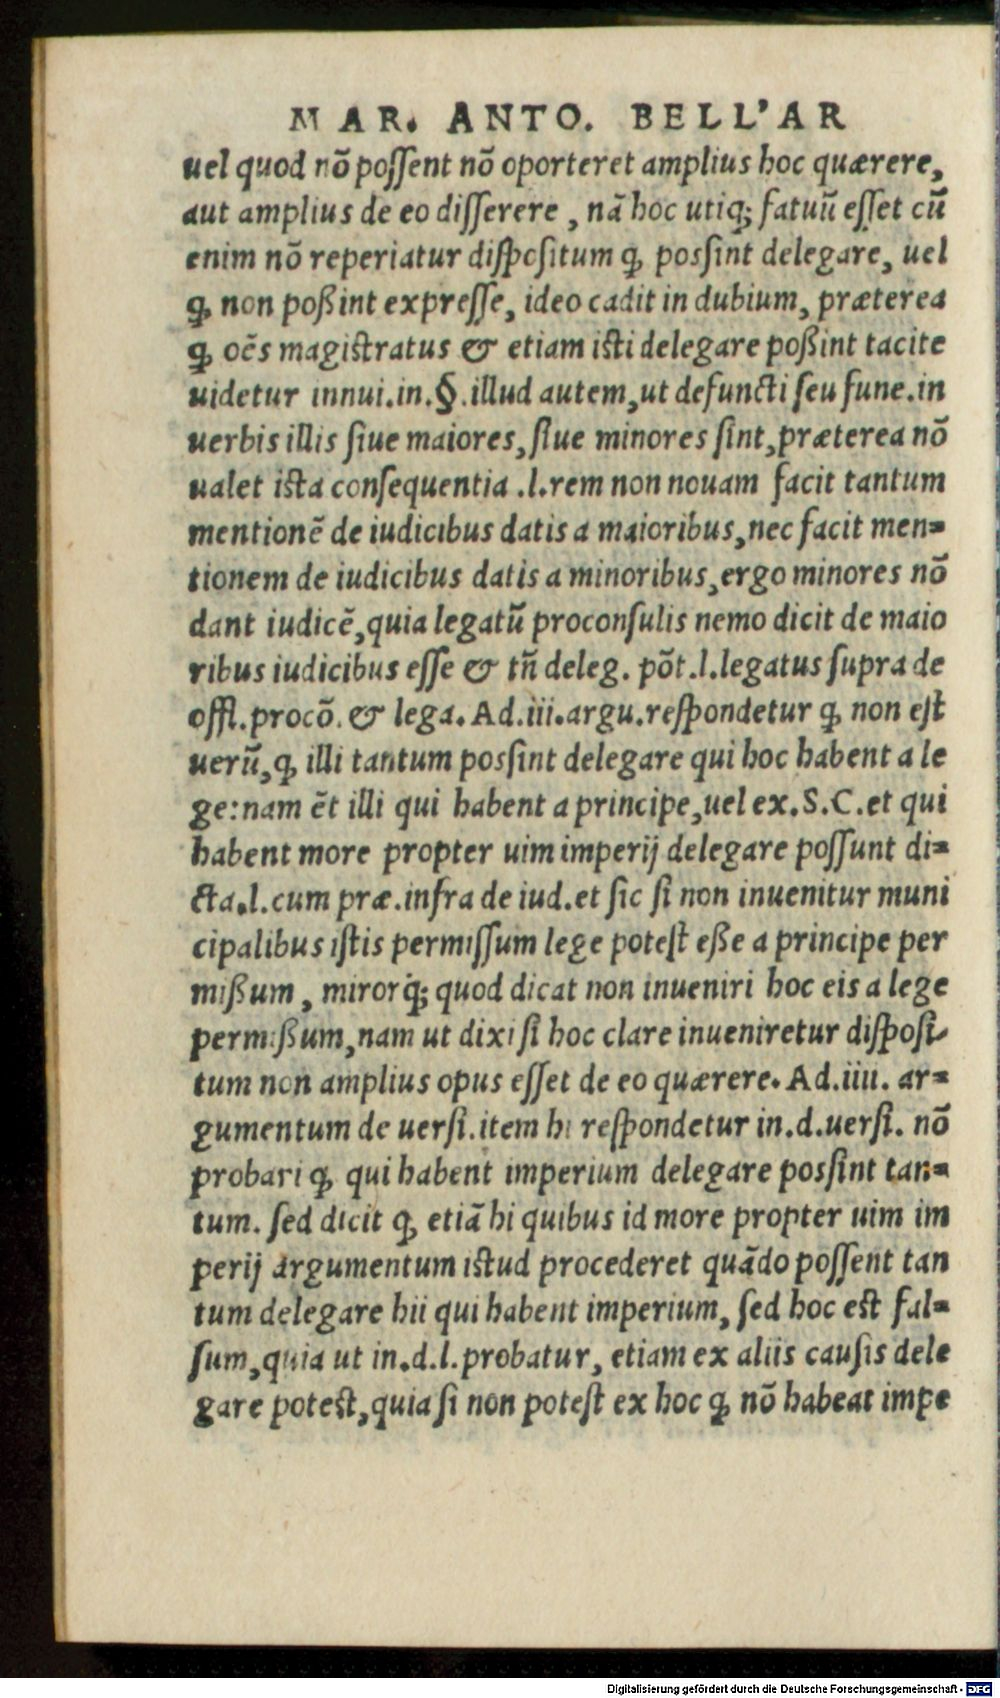 MAR. ANTO. BELL'AR
uel quod nõ poſſent nõ oporteret amplius hoc quærere,
aut amplius de eo diſſerere , nã hoc utiq; fatuũ eſſet cũ
enim nõ reperiatur diſpoſitum ꝙ poſſint delegare, uel
ꝙ non poßint expreſſe, ideo cadit in dubium, præterea
ꝙ oẽs magiſtratus & etiam iſti delegare poßint tacite
uidetur innui.in.§.illud autem,ut defuncti ſeu fune.in
uerbis illis ſiue maiores, ſiue minores ſint,præterea nõ
ualet iſta conſequentia .l.rem non nouam facit tantum
mentionẽ de iudicibus datis a maioribus,nec facit men=
tionem de iudicibus datis a minoribus,ergo minores nõ
dant iudicẽ,quia legatũ proconſulis nemo dicit de maio
ribus iudicibus eſſe & tñ deleg. põt.l.legatus ſupra de
offi.procõ. & lega. Ad.iii.argu.reſpondetur ꝙ non eſt
uerũ,ꝙ illi tantum poſſint delegare qui hoc habent a le
ge:nam ẽt illi qui habent a principe,uel ex.S.C.et qui
habent more propter uim imperij delegare poſſunt di=
cta.l.cum præ.infra de iud.et ſic ſi non inuenitur muni
cipalibus iſtis permiſſum lege poteſt eße a principe per
mißum , mirorq́; quod dicat non inueniri hoc eis a lege
permißum,nam ut dixi ſi hoc clare inueniretur diſpoſi-
tum non amplius opus eſſet de eo quærere. Ad.iiii. ar=
gumentum de uerſi.item hi reſpondetur in.d.uerſi. nõ
probari ꝙ qui habent imperium delegare poſſint tan=
tum. ſed dicit ꝙ etiã hi quibus id more propter uim im
perij argumentum iſtud procederet quãdo poſſent tan
tum delegare hii qui habent imperium, ſed hoc eſt fal=
ſum,quia ut in.d.l.probatur, etiam ex aliis cauſis dele
gare poteſt,quia ſi non poteſt ex hoc ꝙ nõ habeat impe
Digitalisierung gefördert durch die Deutsche Forschungsgemeinschaft - DFG